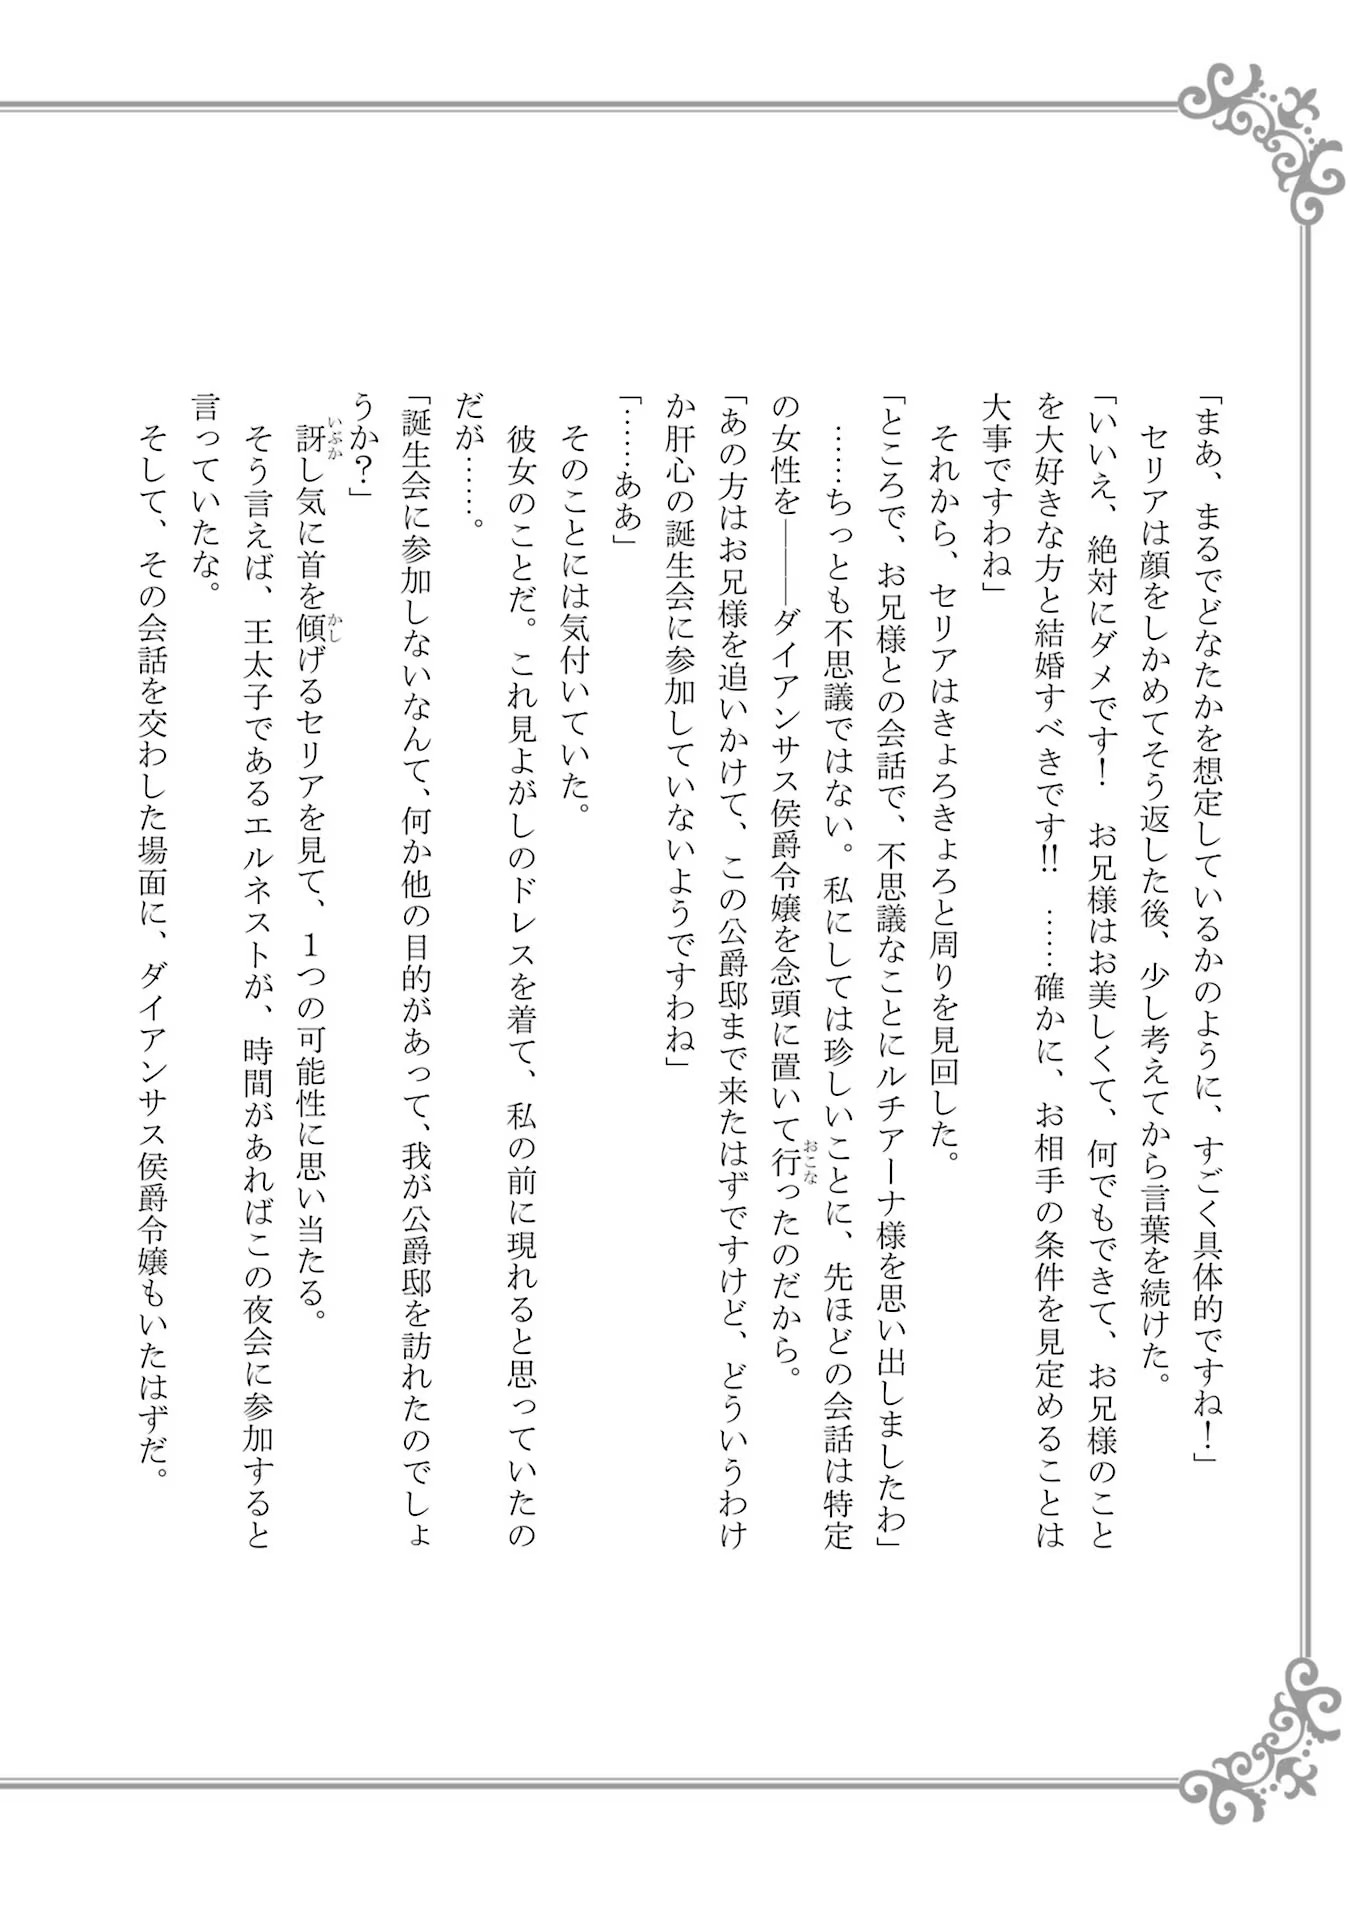 「まあ、まるでどなたかを想定しているかのように、すごく具体的ですね！」
セリアは顔をしかめてそう返した後、少し考えてから言葉を続けた。
「いいえ、絶対にダメです！　お兄様はお美しくて、何でもできて、お兄様のこと
を大好きな方と結婚すべきです!!　……確かに、お相手の条件を見定めることは
大事ですわね」
それから、セリアはきょろきょろと周りを見回した。
「ところで、お兄様との会話で、不思議なことにルチアーナ様を思い出しましたわ」
……ちっとも不思議ではない。私にしては珍しいことに、先ほどの会話は特定
の女性を―――ダイアンサス侯爵令嬢を念頭に置いて行ったのだから。
おこな
「あの方はお兄様を追いかけて、この公爵邸まで来たはずですけど、どういうわけ
か肝心の誕生会に参加していないようですわね」
「……ああ」
そのことには気付いていた。
彼女のことだ。これ見よがしのドレスを着て、私の前に現れると思っていたの
だが……。
「誕生会に参加しないなんて、何か他の目的があって、我が公爵邸を訪れたのでしょ
うか？」
訝し気に首を傾げるセリアを見て、１つの可能性に思い当たる。
いぶか
かし
そう言えば、王太子であるエルネストが、時間があればこの夜会に参加すると
言っていたな。
そして、その会話を交わした場面に、ダイアンサス侯爵令嬢もいたはずだ。